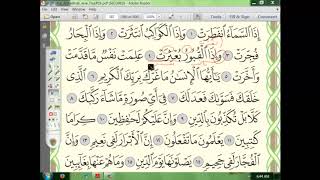 إِذَا السَّمَاءُ انفَطَرَتْ ١ وَإِذَا الْكَوَاكِبُ انتَثَرَتْ ٢ وَإِذَا الْبِحَارُ
فُجِّرَتْ ٣ وَإِذَا الْقُبُورُ بُعْثِرَتْ ٤ عَلِمَتْ نَفْسٌ مَّا قَدَّمَتْ
وَأَخَّرَتْ ٥ يَا أَيُّهَا الْإِنسَانُ مَا غَرَّكَ بِرَبِّكَ الْكَرِيمِ ٦ الَّذِي
خَلَقَكَ فَسَوَّاكَ فَعَدَلَكَ ٧ فِي أَيِّ صُورَةٍ مَّا شَاءَ رَكَّبَكَ ٨
كَلَّا بَلْ تُكَذِّبُونَ بِالدِّينِ ٩ وَإِنَّ عَلَيْكُمْ لَحَافِظِينَ ١٠ كِرَامًا
كَاتِبِينَ ١١ يَعْلَمُونَ مَا تَفْعَلُونَ ١٢ إِنَّ الْأَبْرَارَ لَفِي نَعِيمٍ ١٣ وَإِنَّ
الْفُجَّارَ لَفِي جَحِيمٍ ١٤ يَصْلَوْنَهَا يَوْمَ الدِّينِ ١٥ وَمَا هُمْ عَنْهَا بِغَائِبِينَ